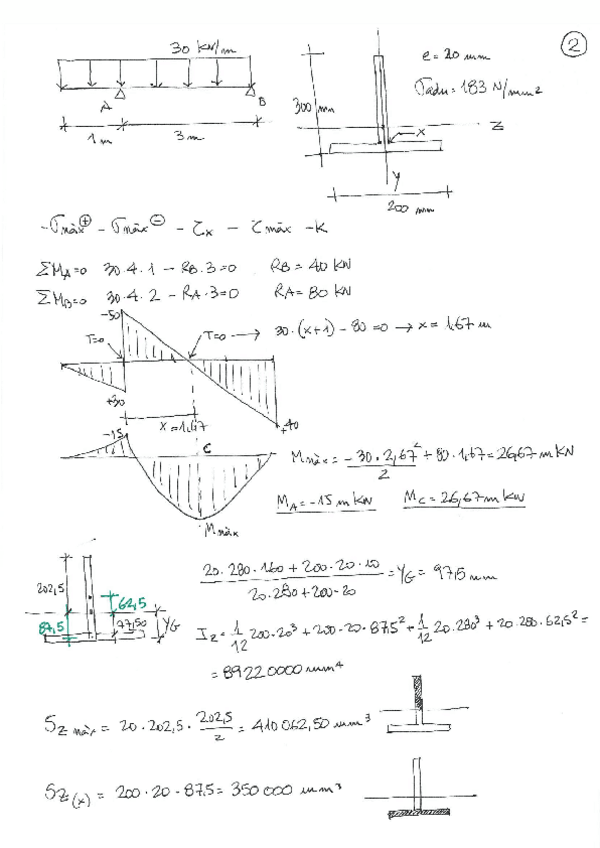 2
30 kN/m
e = 20 mm
σadm = 183 N/mm²
A
B
1 m
3 m
300 mm
x
z
y
200 mm
- σmàx⊕ - σmàx⊖ - τx - τmàx - K
ΣMA=0 30·4·1 - RB·3=0 RB = 40 kN
ΣMB=0 30·4·2 - RA·3=0 RA = 80 kN
-50
T=0
T=0 → 30·(x+1) - 80 = 0 → x = 1,67 m
+30
x = 1,67
+40
-15
C
Mmàx = -30·2,67²/2 + 80·1,67 = 26,67 mkN
MA = -15 mkN MC = 26,67 mkN
Mmàx
202,5
62,5
87,5
97,50
YG
20·280·160 + 200·20·10 / 20·280 + 200·20 = YG = 97,5 mm
Iz = 1/12 200·20³ + 200·20·87,5² + 1/12 20·280³ + 20·280·62,5² =
= 89220000 mm⁴
Sz màx = 20·202,5·202,5/2 = 410062,50 mm³
Sz(x) = 200·20·87,5 = 350000 mm³